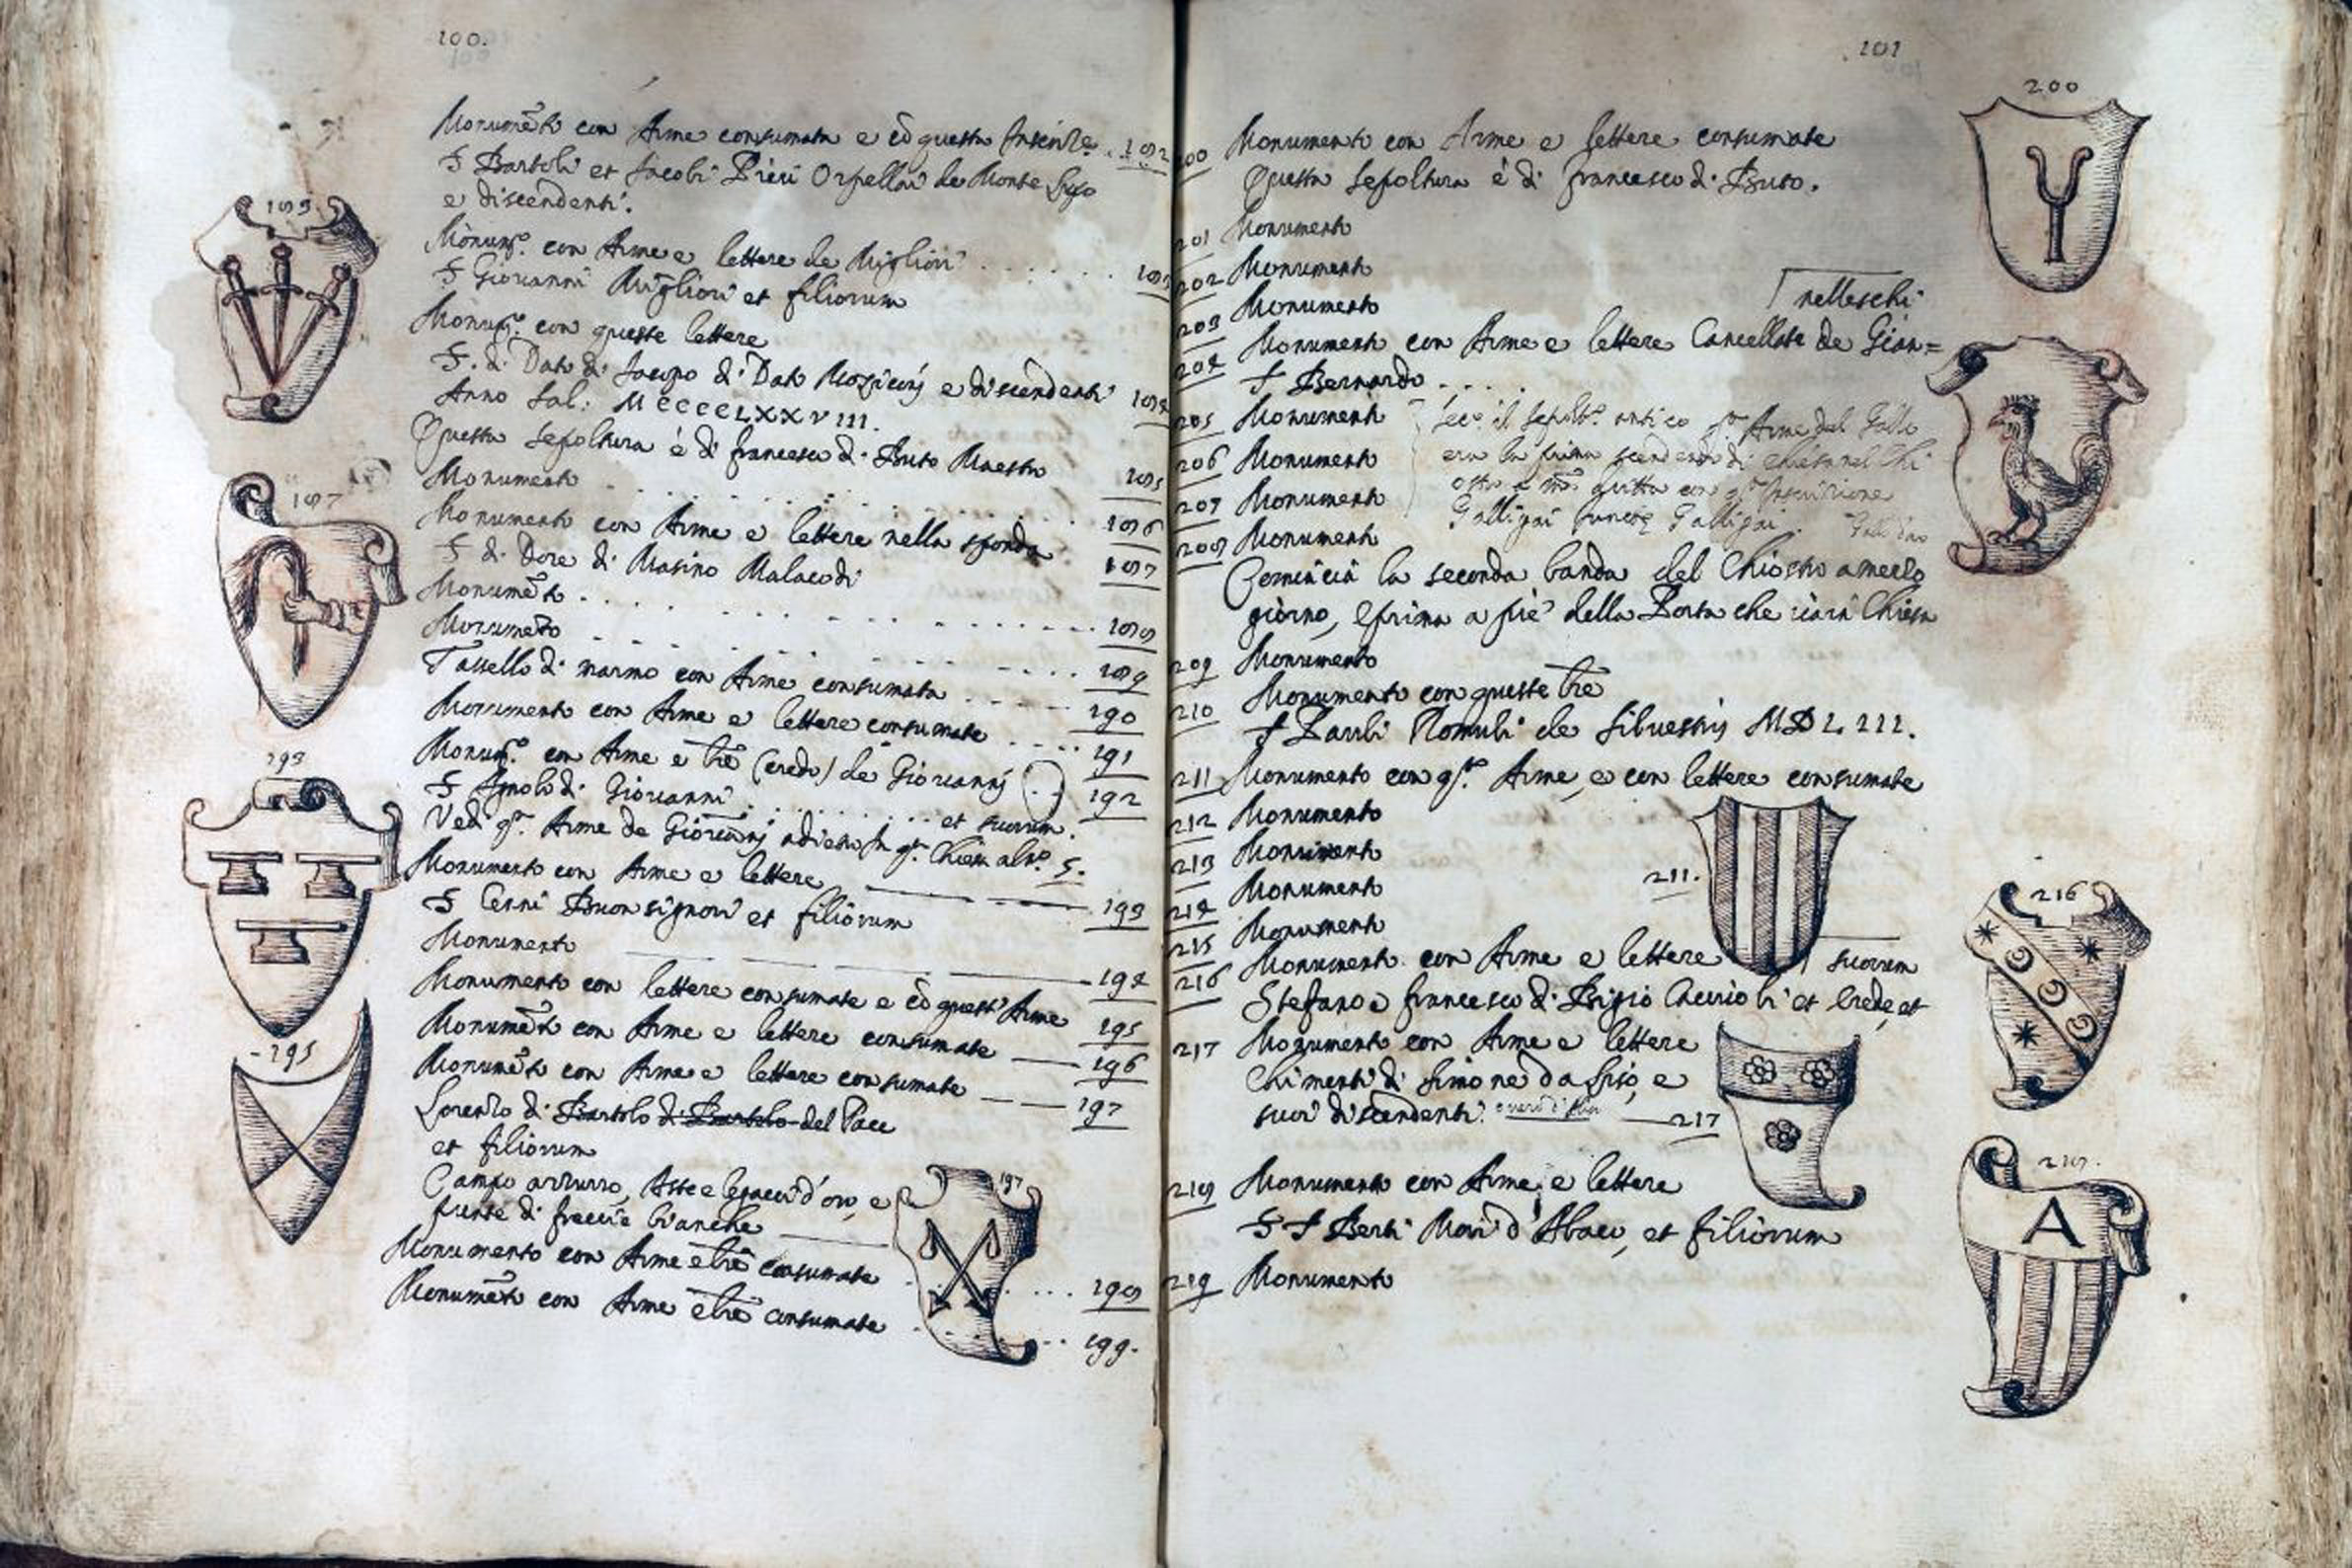 100.
Monumẽto con Arme consumata e cõ questa Inscrizẽ. 182
S Bartoli et Jacobi Pieri Orpellai de Monte
e discendenti.
Monumto. con Arme e lettere de Migliori . . . . . . 183
S Giovanni Migliori et filiorum
Monumto. con queste lettere
S. di Dato di Jacopo di Dato e discendenti 184
Anno Sal: MCCCCLXXVIII.
Questa sepoltura è di francesco di Buto Maestro
Monumento 185
Monumento con Arme e lettere nella sponda 186
S di Dore di Masino Malacodi 187
Monumẽto . . . . . . . . 188
Monumẽto
Tassello di marmo con Arme consumata 189
Monumento con Arme e lettere consumate 190
Monumto. con Arme e lrẽ (credo) de Giovannj 191
S di Giovanni . . . . . . et suorum. 192
Vedi qta. Arme de Giovannj adietro in qta. Chiesa al no. 5.
Monumento con Arme e lettere
S Cenni Buonsignori et filiorum 193
Monumento 194
Monumento con lettere consumate e cõ quest' Arme
Monumẽto con Arme e lettere consumate 195
Monumẽto con Arme e lettere consumate 196
Lorenzo di Bartolo di Bartolo del Pace 197
et filiorum
Campo azzurro, Aste e legacci d'oro, e
punte di freccie bianche
Monumento con Arme e lrẽ consumate . . . . 198
Monumẽto con Arme e lrẽ consumate . . . . 199.
183
187
193
195
197
101
200 Monumento con Arme e lettere consumate
Questa sepoltura è di francesco di Buto.
201 Monumento
202 Monumento
203 Monumento
nelleschi
204 Monumento con Arme e lettere Cancellate de Gian=
S Bernardo . . . .
205 Monumento
206 Monumento
207 Monumento
208 Monumento
il sepolto. antico qta Arme del Gallo
era la prima scendendo di chiesa nel Chi
ostro a mano con qta Inscrizione
Galligai Galligai.
Comincia la seconda banda del Chiostro a mezzo
giorno, e prima a piè della Porta che và in Chiesa
209 Monumento
210 Monumento con queste lrẽ
S Pauli Romuli de Silvestris MDLIII.
211 Monumento con qta. Arme, e con lettere consumate
212 Monumento
213 Monumento
214 Monumento
215 Monumento
216 Monumento con Arme e lettere suorum
Stefano e francesco di Biagio et Erede, et
217 Monumento con Arme e lettere
Chimenti di Simone da e
suoi discendenti. 217
218 Monumento con Arme, e lettere
S S Berti Mori d'Abaco, et filiorum
219 Monumento
200
211.
216
A
218.